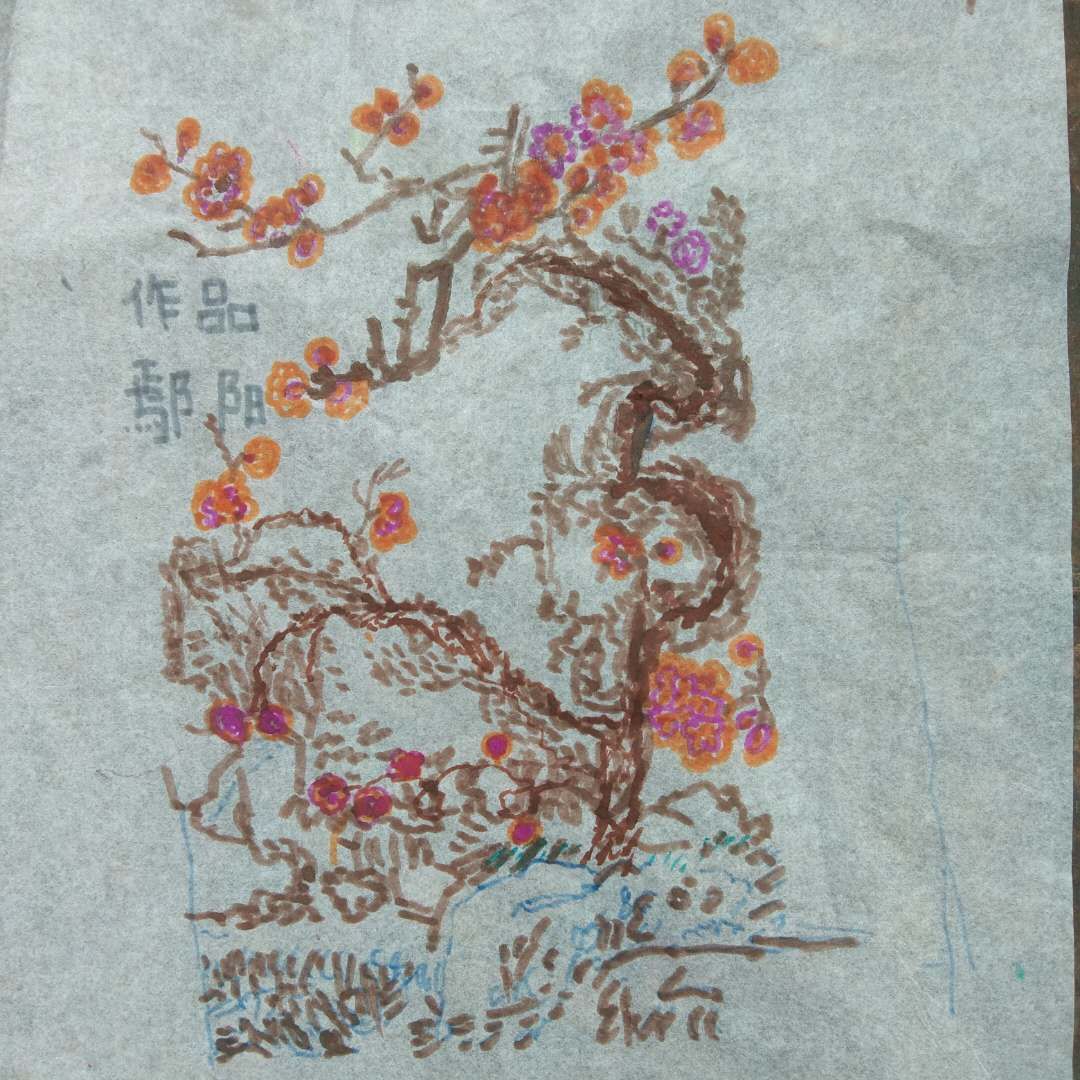 作品
鄢阳